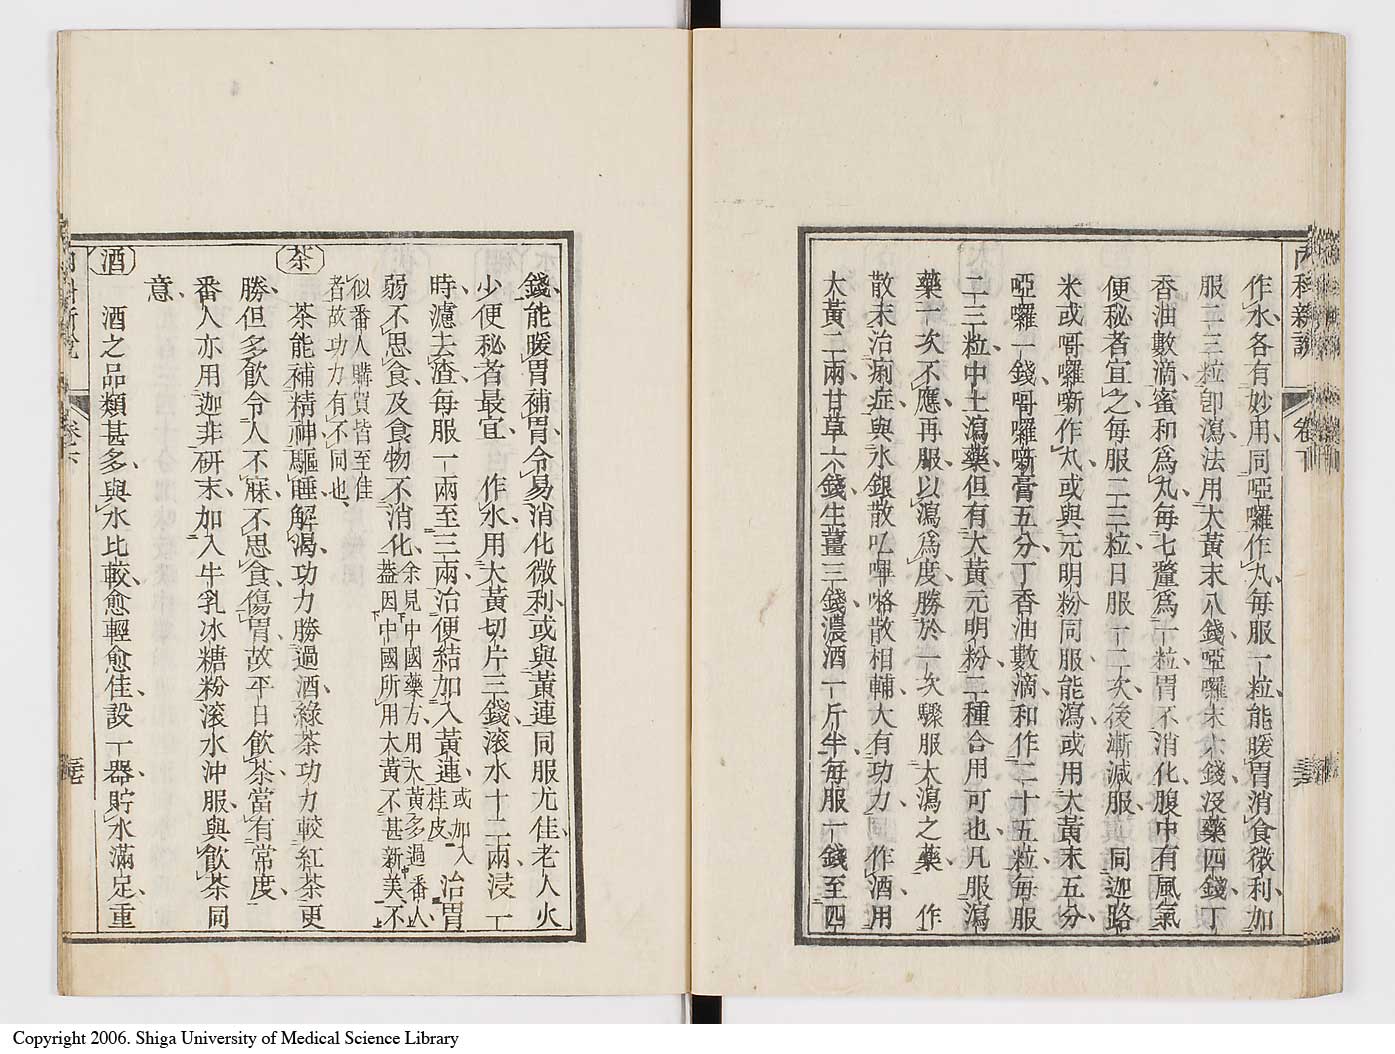 內科新說
卷下
作水各有妙用同啞囉作丸每服一粒能暖胃消食微利加
服二三粒卽瀉法用大黃末八錢啞囉末六錢沒藥四錢丁
香油數滴蜜和爲丸每七釐爲一粒胃不消化腹中有風氣
便秘者宜之每服二三粒日服一二次後漸減服同迦路
米或哥囉噺作丸或與元明粉同服能瀉或用大黃末五分
啞囉一錢哥囉噺膏五分丁香油數滴和作二十五粒每服
二三粒中土瀉藥但有大黃元明粉二種合用可也凡服瀉
藥一次不應再服以瀉爲度勝於一次驟服大瀉之藥作
散末治痢症與水銀散吐嗶咯散相輔大有功力同作酒用
大黃二兩甘草六錢生薑三錢濃酒一斤半每服一錢至四
錢能暖胃補胃令易消化微利或與黃連同服尤佳老人火
少便秘者最宜作水用大黃切片三錢滾水十二兩浸一
時濾去渣每服一兩至三兩治便結加入黃連或加入桂皮治胃
弱不思食及食物不消化余見中國藥方用大黃多過番人蓋因中國所用大黃不甚新美不
似番人購買皆至佳者故功力有不同也
茶
茶能補精神驅睡解渴功力勝過酒綠茶功力較紅茶更
勝但多飲令人不寐不思食傷胃故平日飲茶當有常度
番人亦用迦非研末加入牛乳冰糖粉滾水沖服與飲茶同
意
酒
酒之品類甚多與水比較愈輕愈佳設一器貯水滿足重
內科新說
卷下